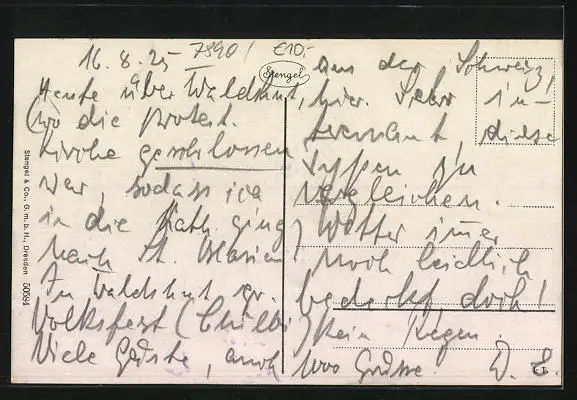 16.8.25
7890/
€10,-
Stengel
Heute über Waldshut,
(wo die protest.
Kirche geschlossen
war, sodass ich
in die Kath. ging)
nach St. Blasien
In Waldshut gr.
Volksfest (Chilbi)
Viele Gäste, auch
aus der Schweiz,
hier. Sehr in-
teressant, diese
Typen zu
vergleichen.
Wetter immer
noch leidlich
bedeckt doch!
Kein Regen.
1000 Grüsse
Stengel & Co., G. m. b. H., Dresden 50084